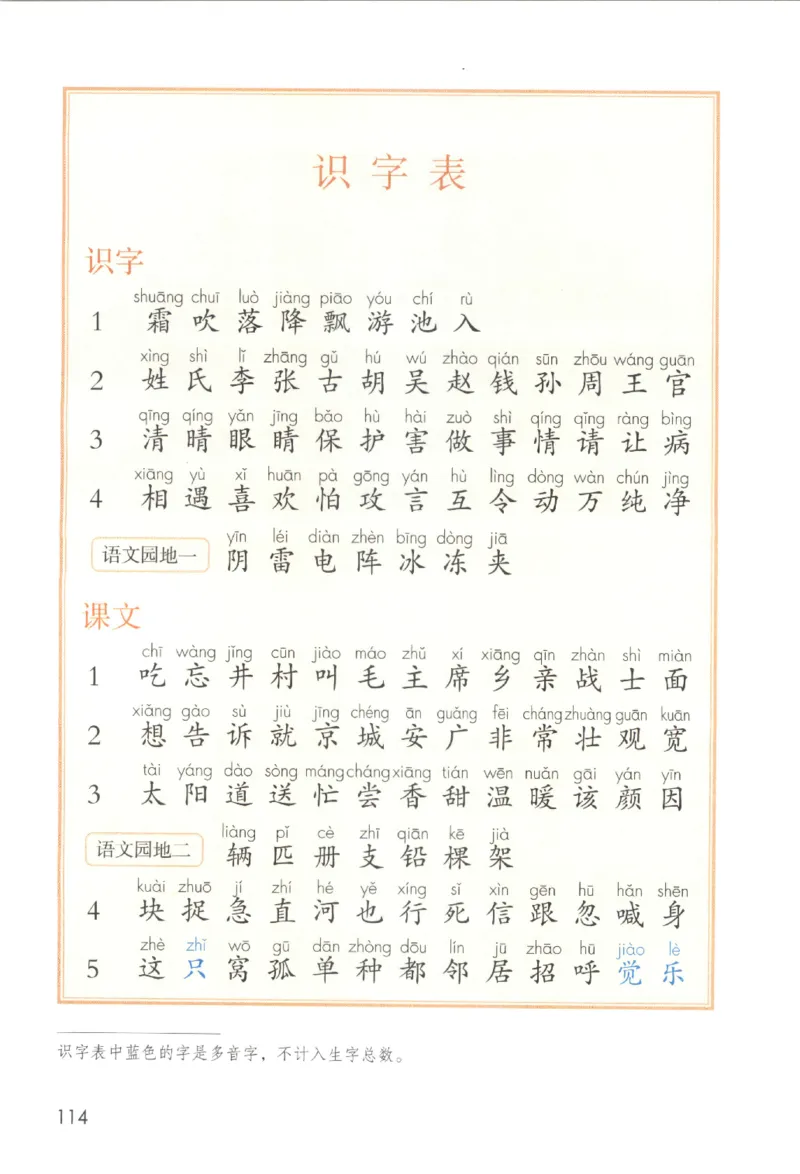 识字表
识字
shuāng chuī luò jiàng piāo yóu chí rù
1 霜 吹 落 降 飘 游 池 入
xìng shì lǐ zhāng gǔ hú wú zhào qián sūn zhōu wáng guān
2 姓 氏 李 张 古 胡 吴 赵 钱 孙 周 王 官
qīng qíng yǎn jīng bǎo hù hài zuò shì qíng qǐng ràng bìng
3 清 晴 眼 睛 保 护 害 做 事 情 请 让 病
xiāng yù xǐ huān pà gōng yán hù lìng dòng wàn chún jìng
4 相 遇 喜 欢 怕 攻 言 互 令 动 万 纯 净
yīn léi diàn zhèn bīng dòng jiā
语文园地一 阴 雷 电 阵 冰 冻 夹
课文
chī wàng jǐng cūn jiào máo zhǔ xí xiāng qīn zhàn shì miàn
1 吃 忘 井 村 叫 毛 主 席 乡 亲 战 士 面
xiǎng gào sù jiù jīng chéng ān guǎng fēi cháng zhuàng guān kuān
2 想 告 诉 就 京 城 安 广 非 常 壮 观 宽
tài yáng dào sòng máng cháng xiāng tián wēn nuǎn gāi yán yīn
3 太 阳 道 送 忙 尝 香 甜 温 暖 该 颜 因
liàng pǐ cè zhī qiān kē jià
语文园地二 辆 匹 册 支 铅 棵 架
kuài zhuō jí zhí hé yě xíng sǐ xìn gēn hū hǎn shēn
4 块 捉 急 直 河 也 行 死 信 跟 忽 喊 身
zhè zhǐ wō gū dān zhòng dōu lín jū zhāo hū jiào lè
5 这 只 窝 孤 单 种 都 邻 居 招 呼 觉 乐
识字表中蓝色的字是多音字，不计入生字总数。
114